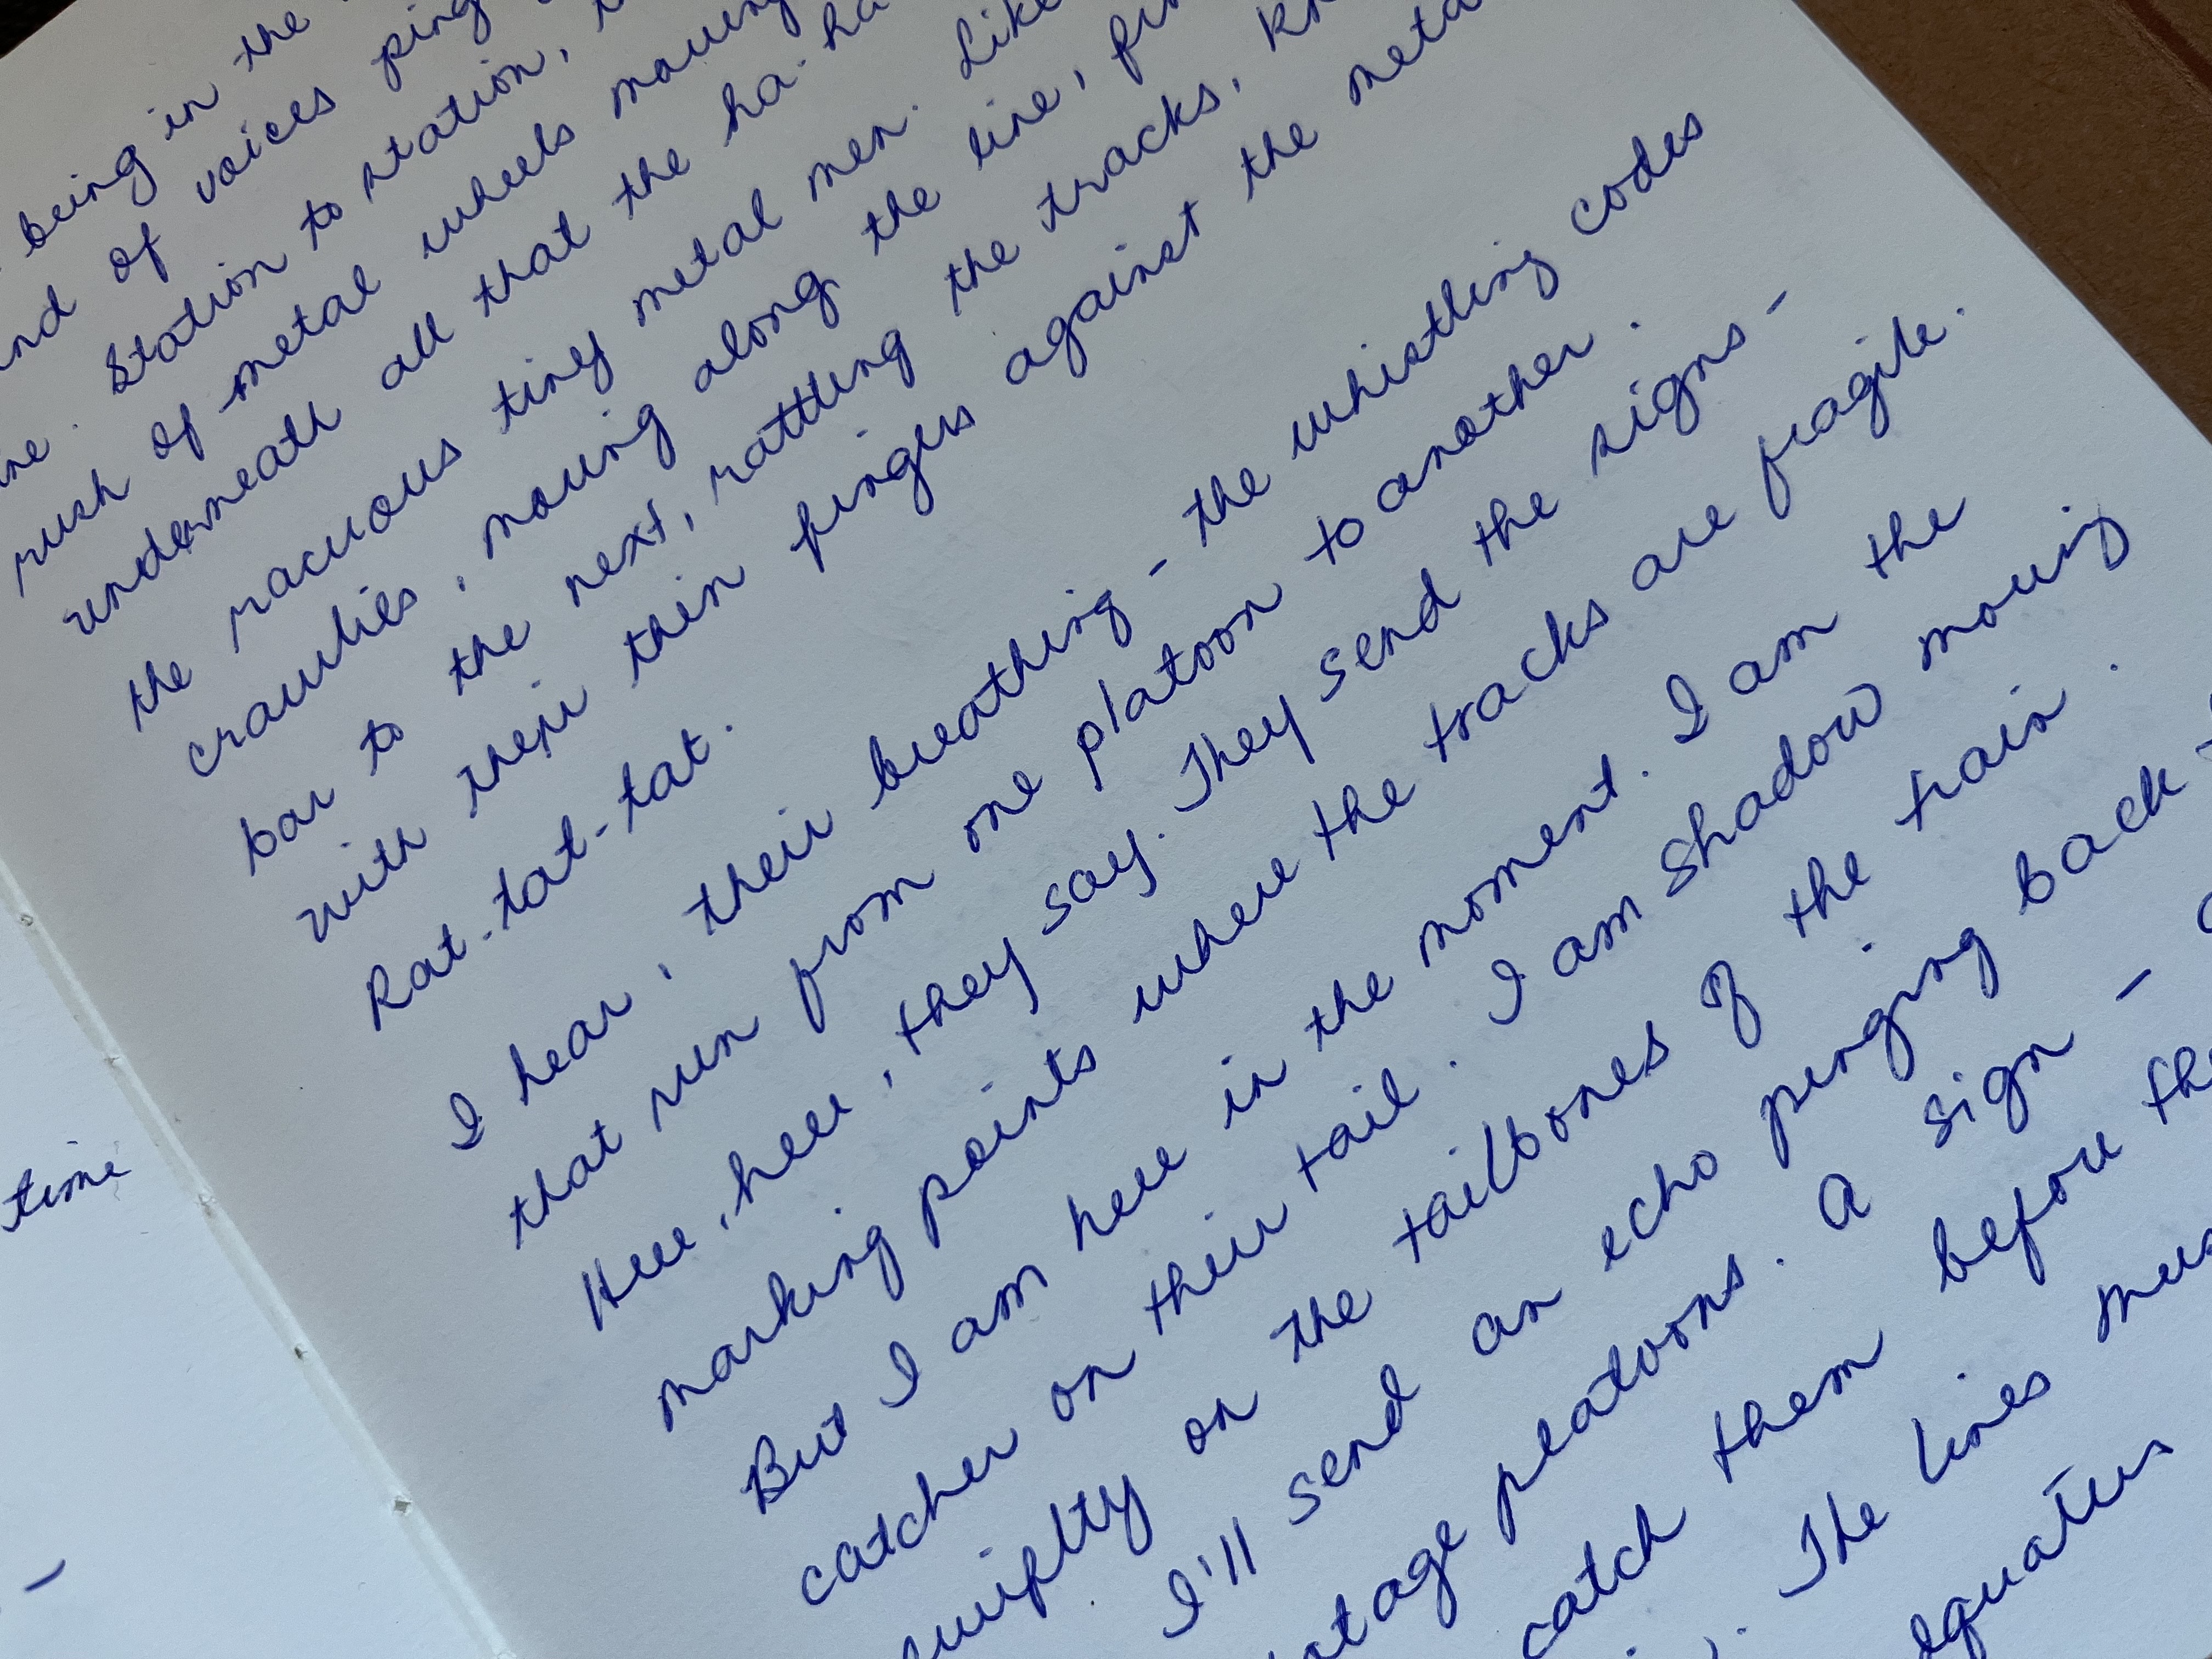 being in the
of voices ping
Station to station,
rush of metal wheels moving
underneath all that the ha-ha
the racuous tiny metal men. Like
crawlies, moving along the line,
bar to the next, rattling the tracks,
with their thin fingers against the
Rat-tat-tat.
I hear, their breathing - the whistling codes
that run from one platoon to another.
Here, here, they say. They send the signs -
marking points where the tracks are fragile.
But I am here in the moment. I am the
catcher on their tail. I am shadow moving
swiftly on the tailbones of the train.
I'll send an echo pinging back
platoons. A sign -
catch them before
The lines
time
-